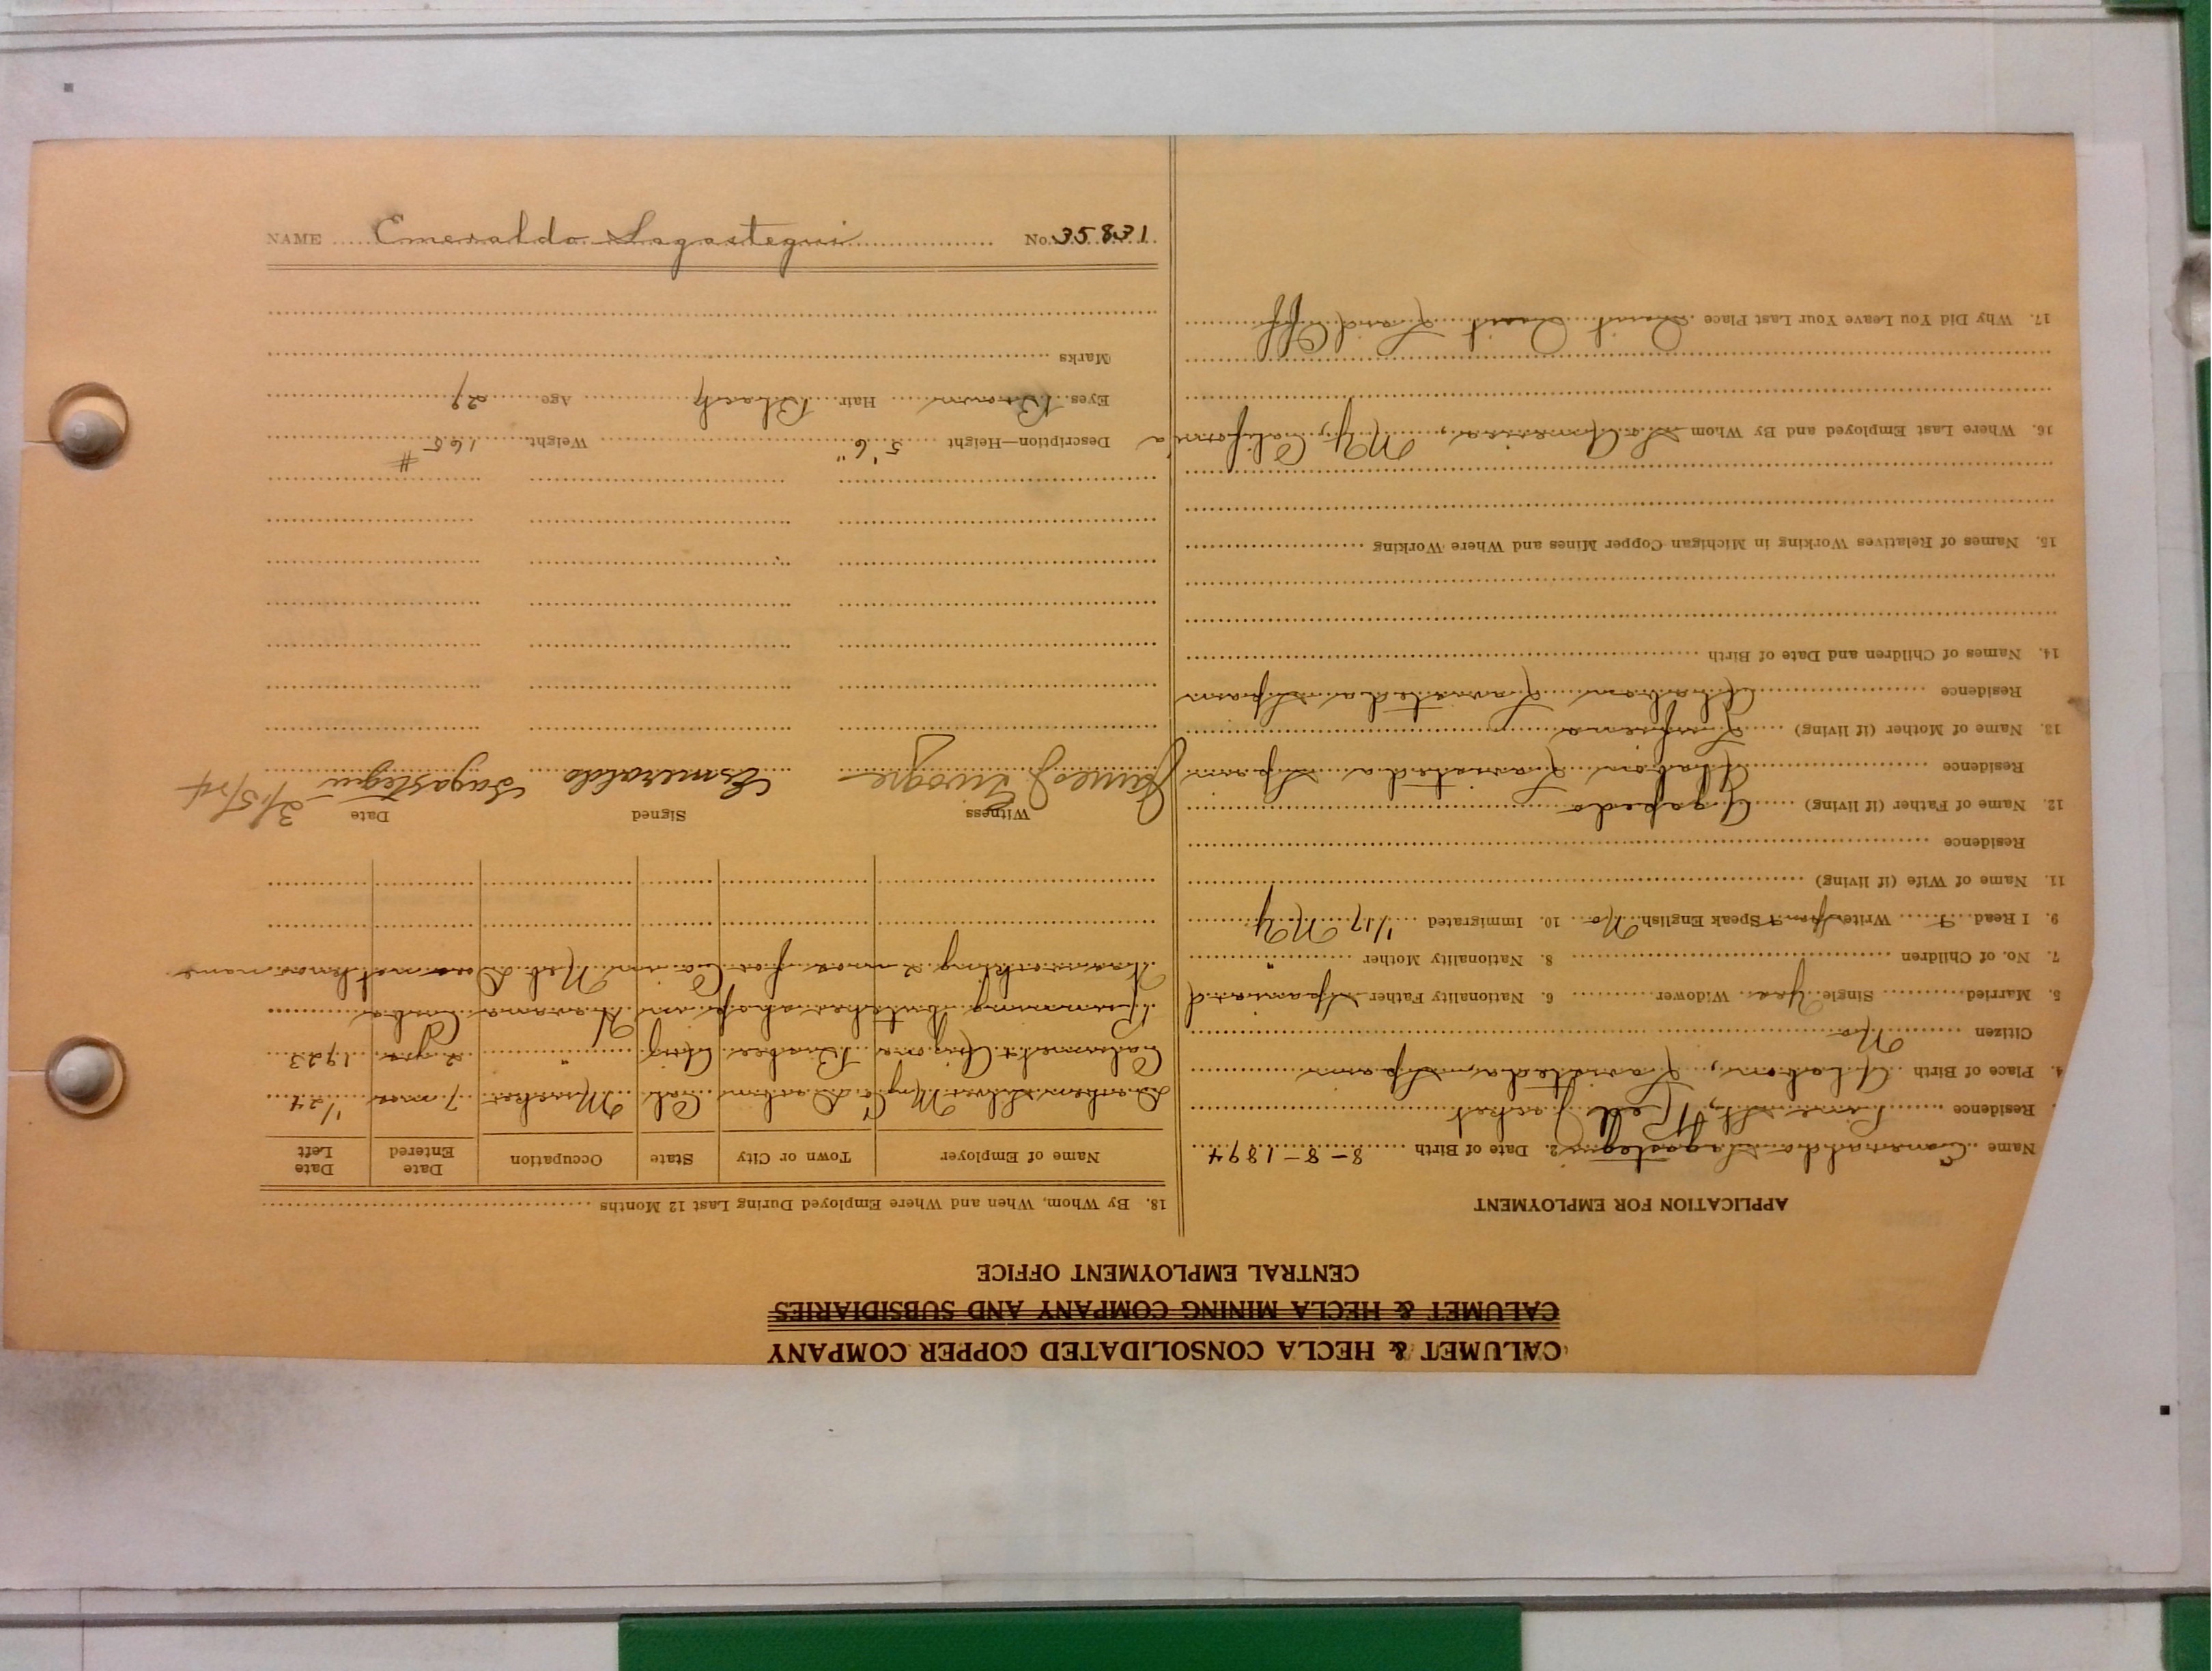 CALUMET & HECLA CONSOLIDATED COPPER COMPANY
CALUMET & HECLA MINING COMPANY AND SUBSIDIARIES
CENTRAL EMPLOYMENT OFFICE
APPLICATION FOR EMPLOYMENT
Name Emeraldo Sagastegui 2. Date of Birth 8-8-1894
Residence Pine St, Red Jacket
4. Place of Birth
Citizen No
5. Married Single Yes Widower 6. Nationality Father Spaniard
7. No. of Children 8. Nationality Mother "
9. I Read Write Speak English No 10. Immigrated 1/17 NY
11. Name of Wife (if living)
Residence
12. Name of Father (if living) Agapedo
Residence Spain
13. Name of Mother (if living)
Residence Spain
14. Names of Children and Date of Birth
15. Names of Relatives Working in Michigan Copper Mines and Where Working
16. Where Last Employed and By Whom So. America, NY, California
17. Why Did You Leave Your Last Place Quit Quit Laid Off
18. By Whom, When and Where Employed During Last 12 Months
Name of Employer Town or City State Occupation Date Entered Date Left
Cal. Mucker 7 mos 1/24
Calumet & Arizona Bisbee Ariz " 2 yrs 1923
Running butcher shop in Havana Cuba
working 2 mos for Co in does not know name
Witness Signed Date
James J Esmeraldo Sagastegui 3/15/24
Description—Height 5' 6" Weight 165 #
Eyes Brown Hair Black Age 29
Marks
NAME Emeraldo Sagastegui No. 35831